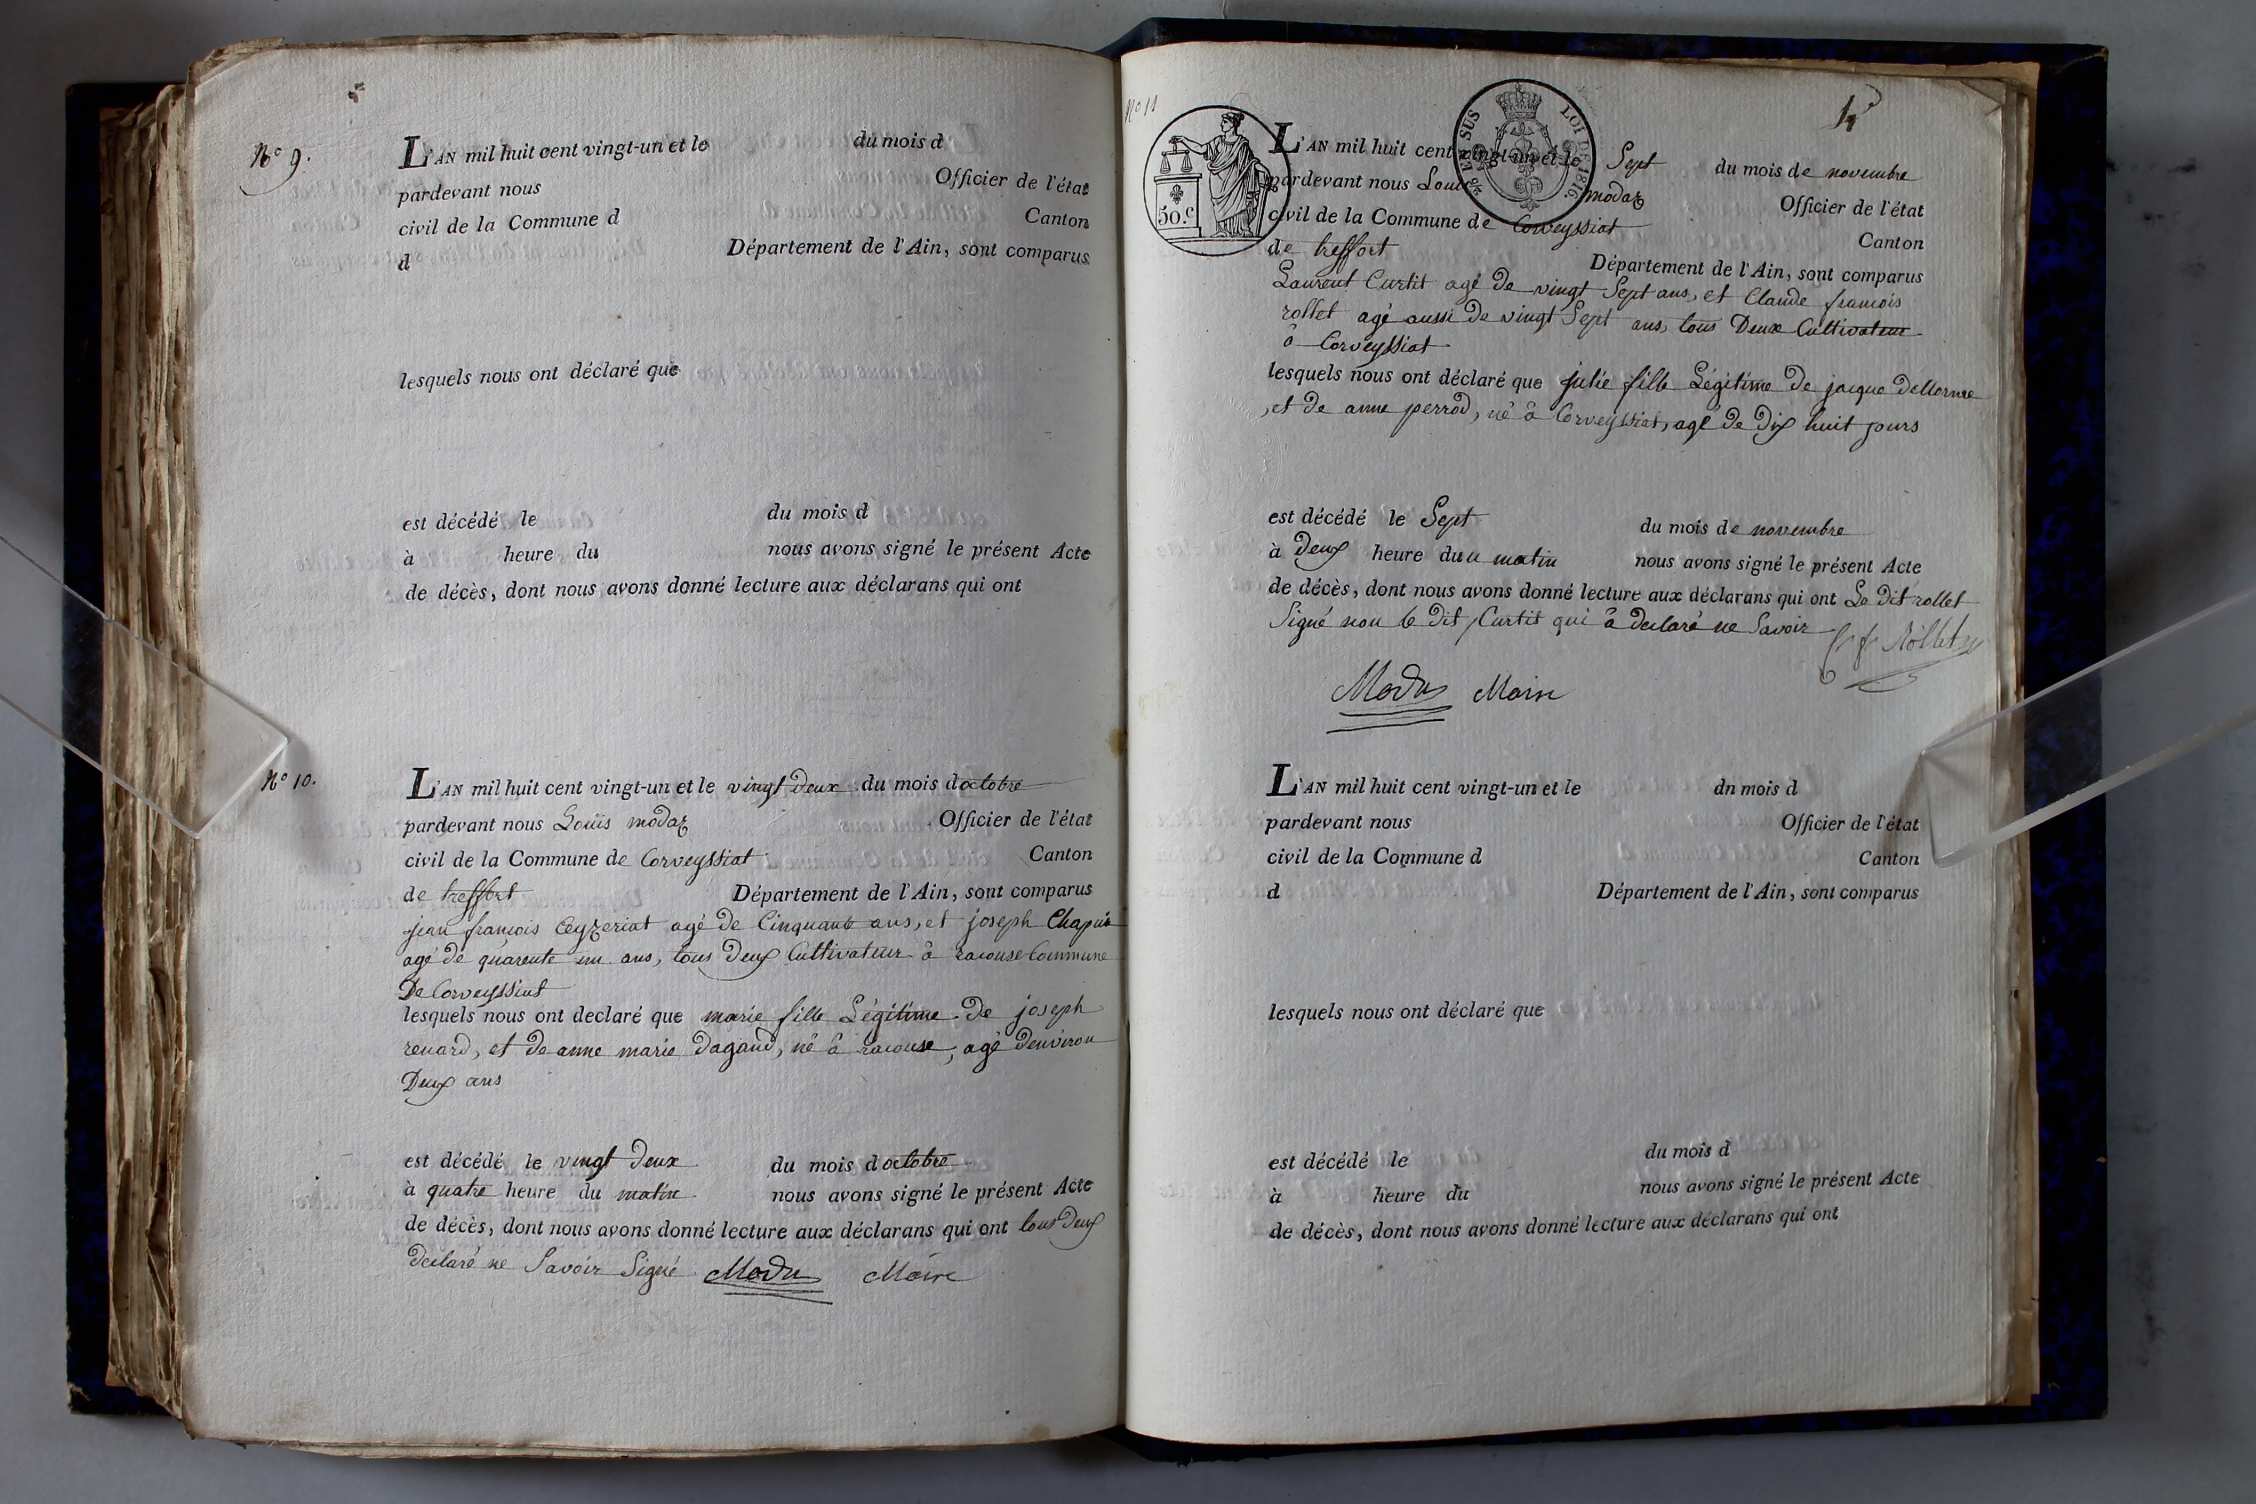 N.º 9.
L'AN mil huit cent vingt-un et le du mois d
pardevant nous Officier de l'état
civil de la Commune d Canton
d Département de l'Ain, sont comparus
lesquels nous ont déclaré que
est décédé le du mois d
à heure du nous avons signé le présent Acte
de décès, dont nous avons donné lecture aux déclarans qui ont
N.º 10.
L'AN mil huit cent vingt-un et le vingt deux du mois d octobre
pardevant nous Louis modaz Officier de l'état
civil de la Commune de Corveyssiat Canton
de treffort Département de l'Ain, sont comparus
jean françois Ceyzeriat agé de Cinquante ans, et joseph Chapuis
agé de quarente un ans, tous Deux Cultivateur à racouse Commune
De Corveyssiat
lesquels nous ont declaré que marie fille Légitime De joseph
renard, et De anne marie Dagand, né à racouse, agé Denviron
Deux ans
est décédé le vingt Deux du mois d octobre
à quatre heure du matin nous avons signé le présent Acte
de décès, dont nous avons donné lecture aux déclarans qui ont tous Deux
declaré ne Savoir Signé Modas Maire
N.º 11
50.C
% EN SUS LOI DE 1816.
4e
L'AN mil huit cent vingt-un et le Sept du mois de novembre
pardevant nous Loui modaz Officier de l'état
civil de la Commune de Corveyssiat Canton
de treffort Département de l'Ain, sont comparus
Laurent Curtit agé de vingt Sept ans, et Claude françois
rollet agé aussi De vingt Sept ans, tous Deux Cultivateur
à Corveyssiat
lesquels nous ont déclaré que julie fille Légitime De jacque Dellorme
, et De anne perrod, né à Corveyssiat, agé De Dix huit jours
est décédé le Sept du mois de novembre
à Deux heure du u matin nous avons signé le présent Acte
de décès, dont nous avons donné lecture aux déclarans qui ont Le Dit rollet
Signé non le Dit Curtit qui à declaré ne Savoir C f Rollet
Modas Maire
L'AN mil huit cent vingt-un et le dn mois d
pardevant nous Officier de l'état
civil de la Commune d Canton
d Département de l'Ain, sont comparus
lesquels nous ont déclaré que
est décédé le du mois d
à heure du nous avons signé le présent Acte
de décès, dont nous avons donné lecture aux déclarans qui ont